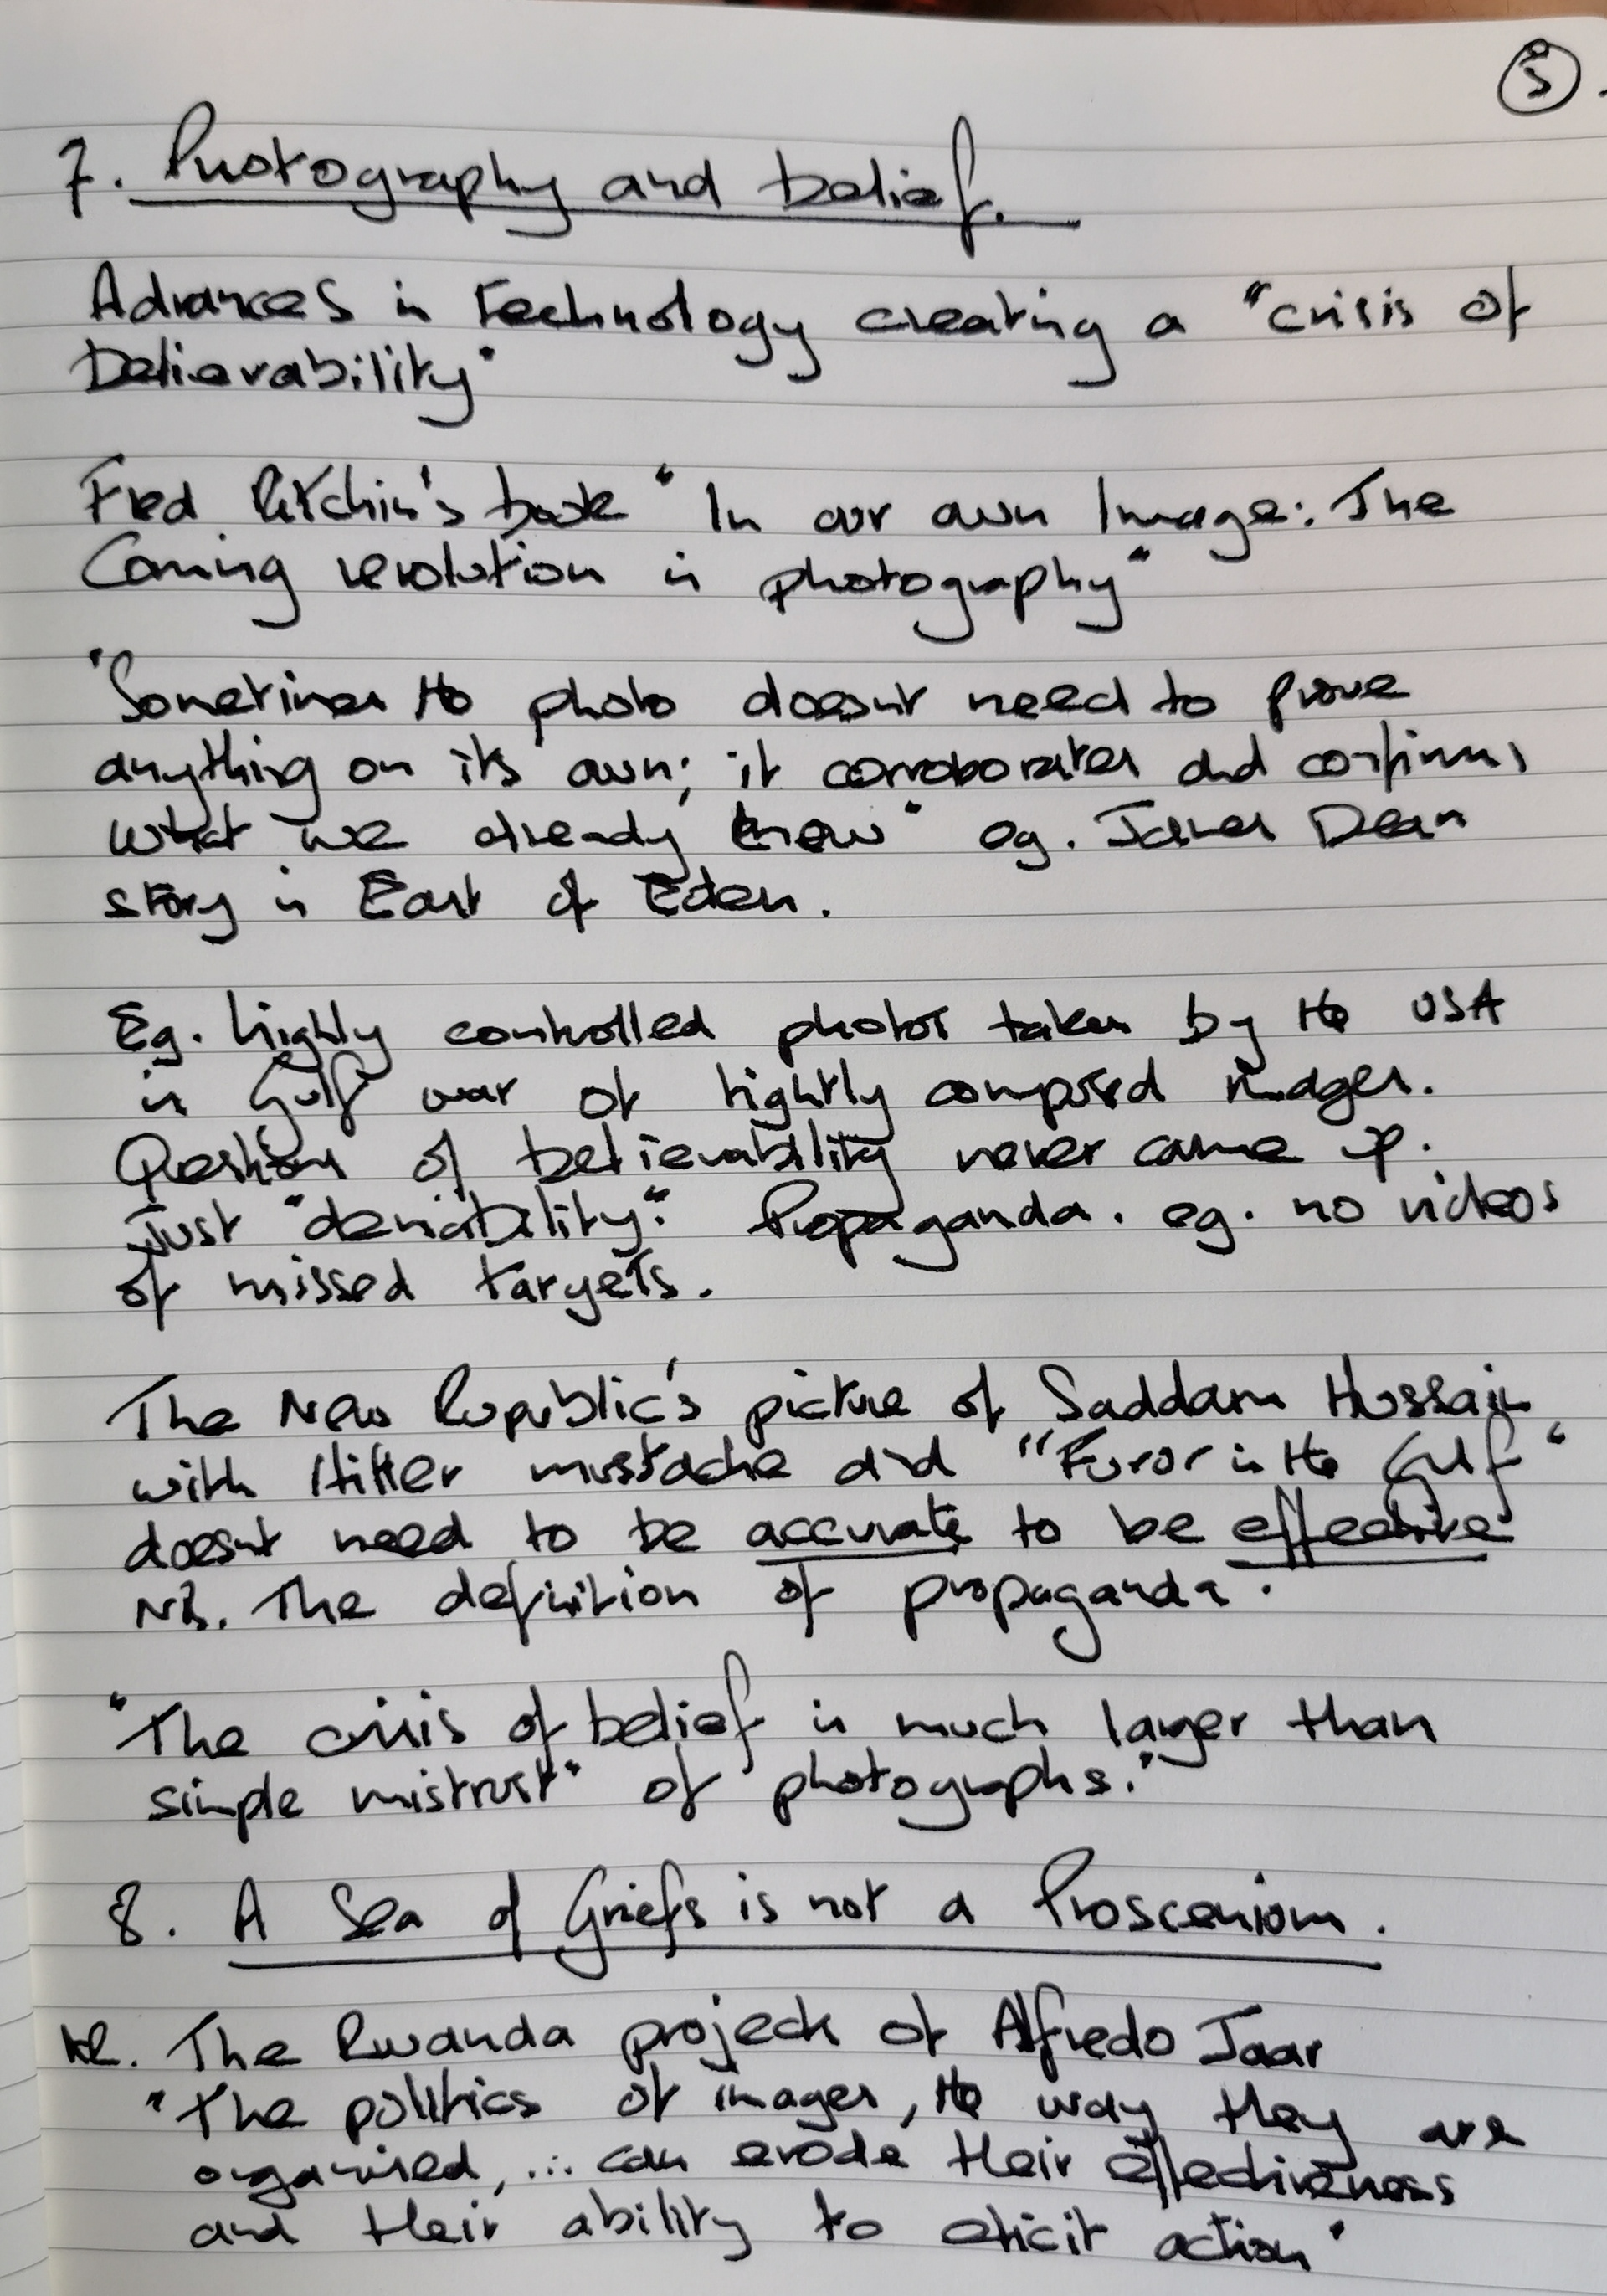 5.
7. Photography and belief.
Advances in technology creating a "crisis of
believability"
Fred Ritchin's book "In our own Image: The
Coming revolution in photography"
"Sometimes the photo doesnt need to prove
anything on its own; it corroborates and confirms
what we already know" eg. James Dean
story in East of Eden.
Eg. highly controlled photos taken by the USA
in Gulf war of tightly composed images.
Questions of believability never came up.
Just "deniability". Propaganda. eg. no videos
of missed targets.
The New Republic's picture of Saddam Hussain
with Hitler mustache and "Furor in the Gulf"
doesnt need to be accurate to be effective
NB. The definition of propaganda.
"The crisis of belief is much larger than
simple mistrust" of photographs."
8. A Sea of Griefs is not a Proscenium.
re. The Rwanda projects of Alfredo Jaar
"The politics of images, the way they are
organised, ... can erode their effectiveness
and their ability to elicit action"